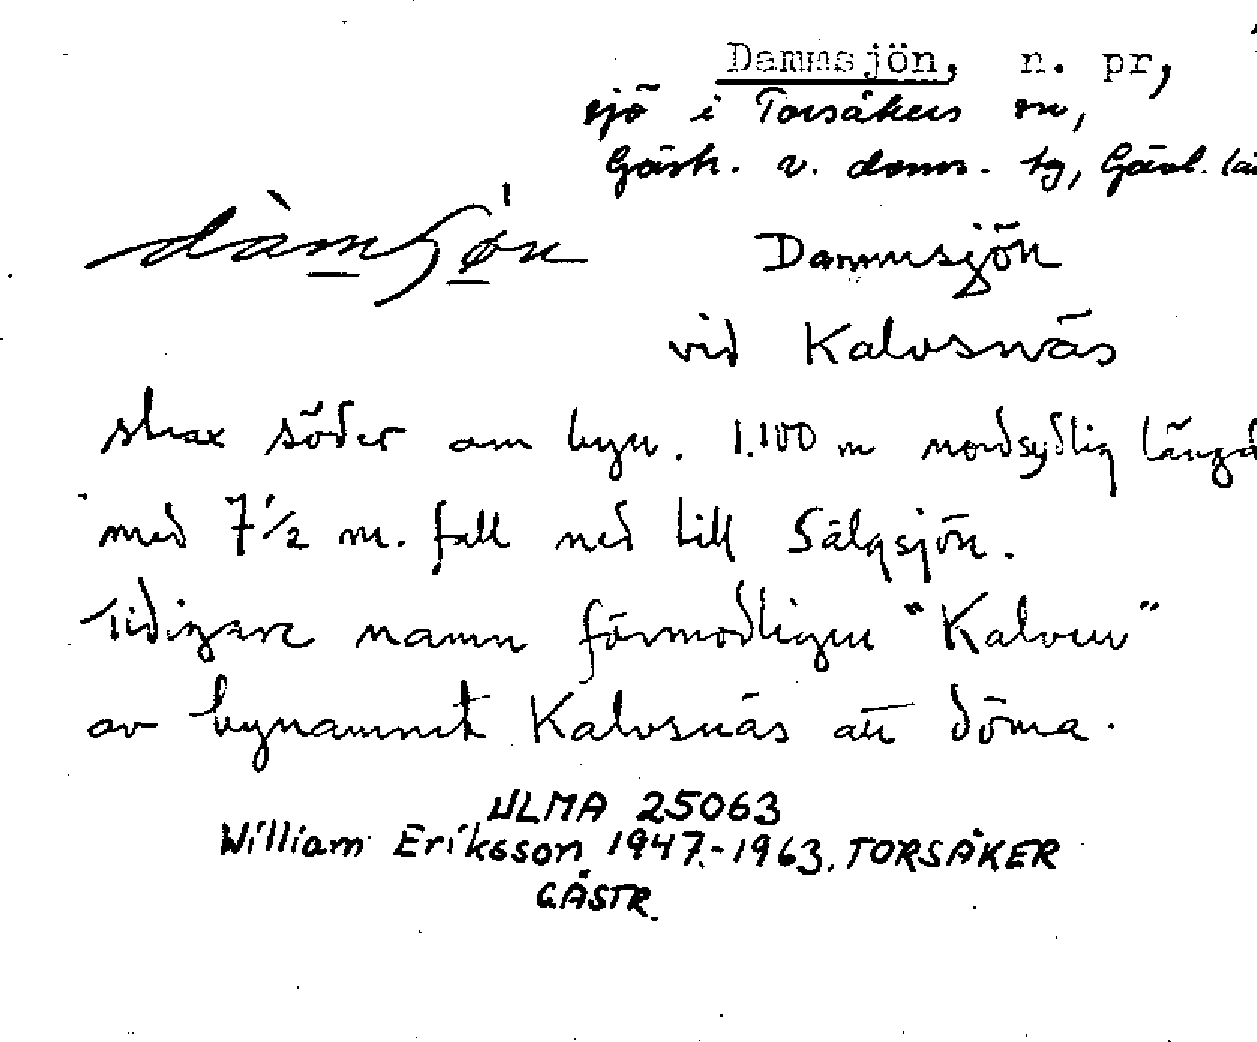 Dammsjön, n. pr,
sjö i Torsåkers sn,
Gästr. v. doms. tg, Gävl. lä
dàmʃǿn Dammsjön
vid Kalvsnäs
strax söder om byn. 1.100 m nordsydlig längd
med 7 1/2 m. fall ned till Sälgsjön.
Tidigare namn förmodligen "Kalven"
av bynamnet Kalvsnäs att döma.
ULMA 25063
William Eriksson 1947.-1963. TORSÅKER
GÄSTR.